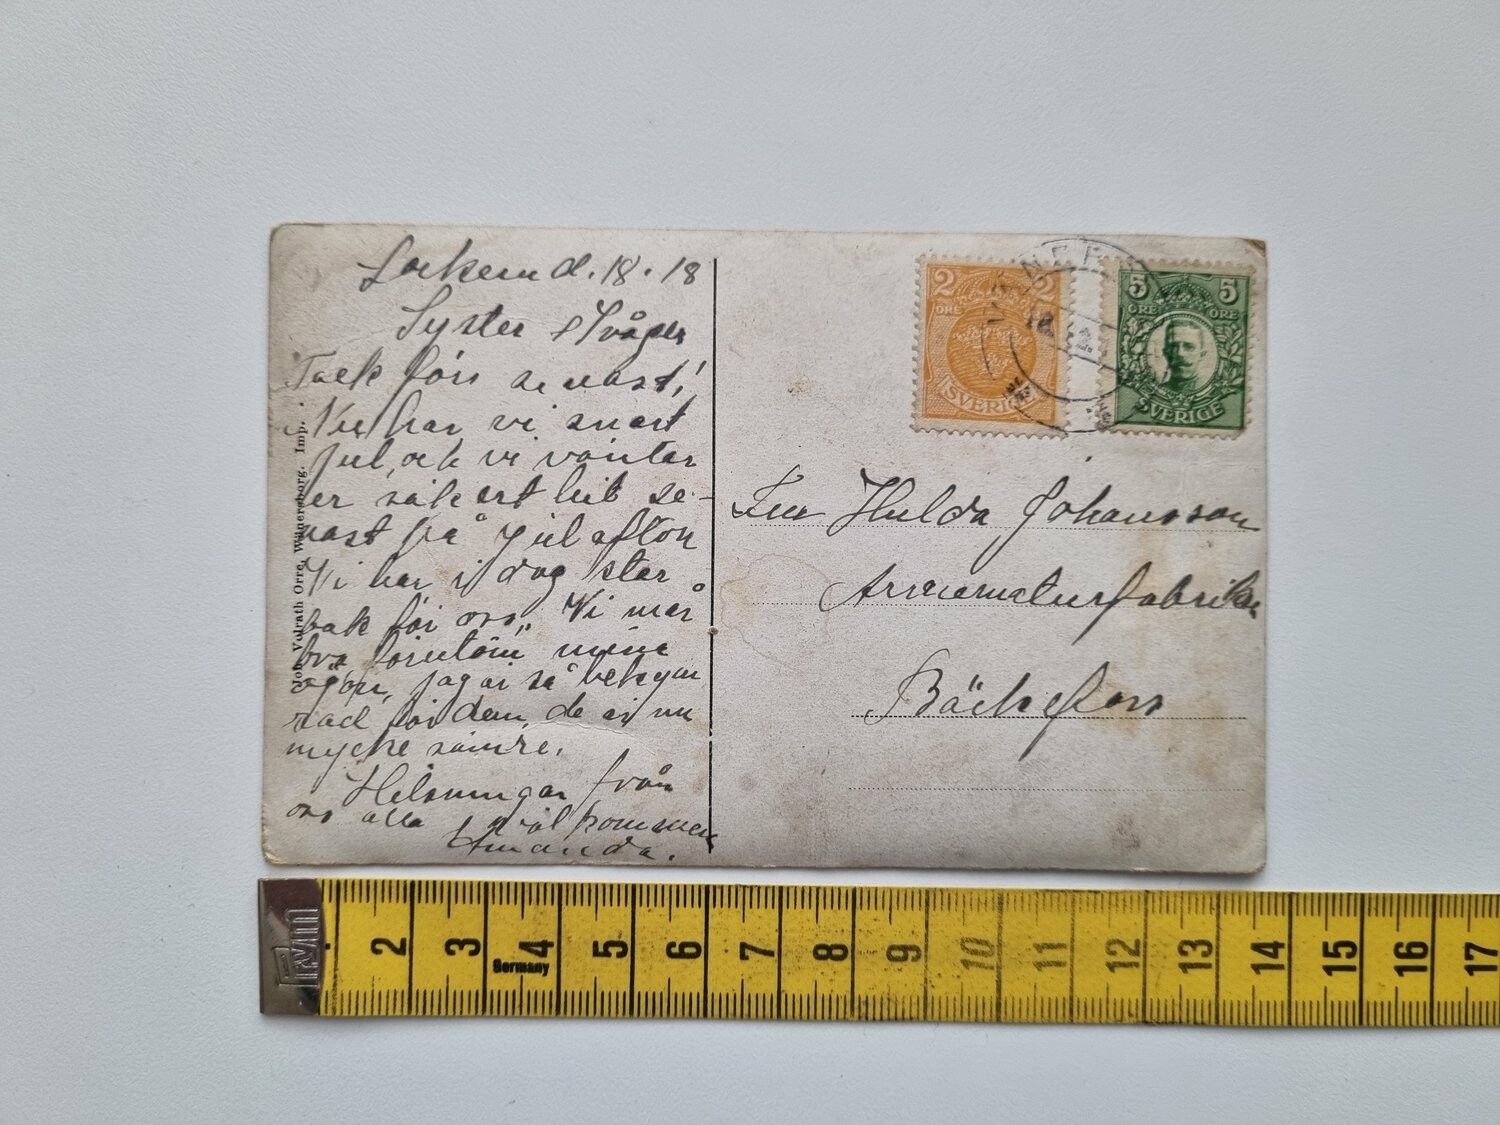 d. 18. 18
Syster & Svåger
Tack för senast!
Nu har vi snart
jul, och vi väntar
er säkert hit se-
nast på Julafton
Vi har i dag stor
bak för oss, Vi mår
bra förutom mina
ögon, jag är så bekym
rad för dem, de är nu
mycke sämre.
Helsningar från
oss alla välkommen
Amanda.
Joh. Volrath Orre, Wänersborg. Imp.
2 2
ÖRE
SVERIGE
5 5
ÖRE ÖRE
SVERIGE
Fru Hulda Johansson
Armaturfabriken
Bäckefors
2 3 4 5 6 7 8 9 10 11 12 13 14 15 16 17
Germany